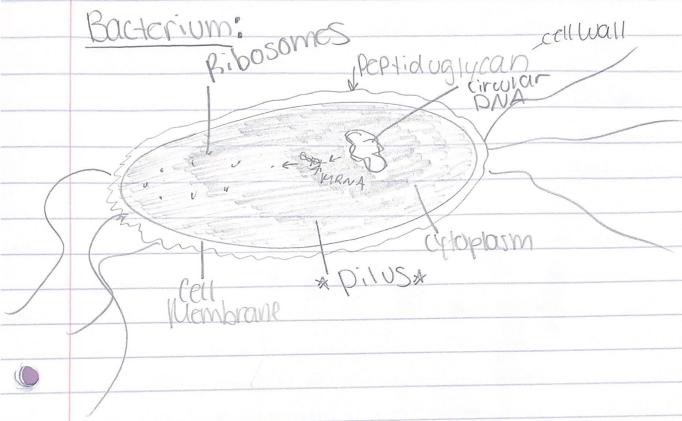 Bacterium:
Ribosomes
cell wall
Peptiduglycan
circular
DNA
MRNA
Cytoplasm
* Pilus *
Cell
Membrane